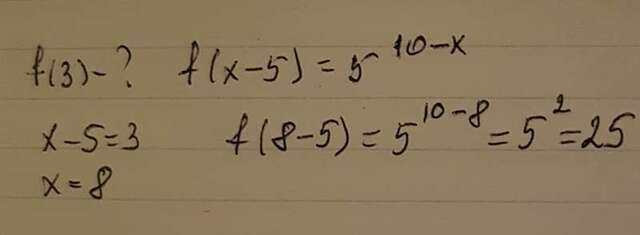 f(3)-? f(x-5)=5^10-x
x-5=3 f(8-5)=5^10-8=5^2=25
x=8